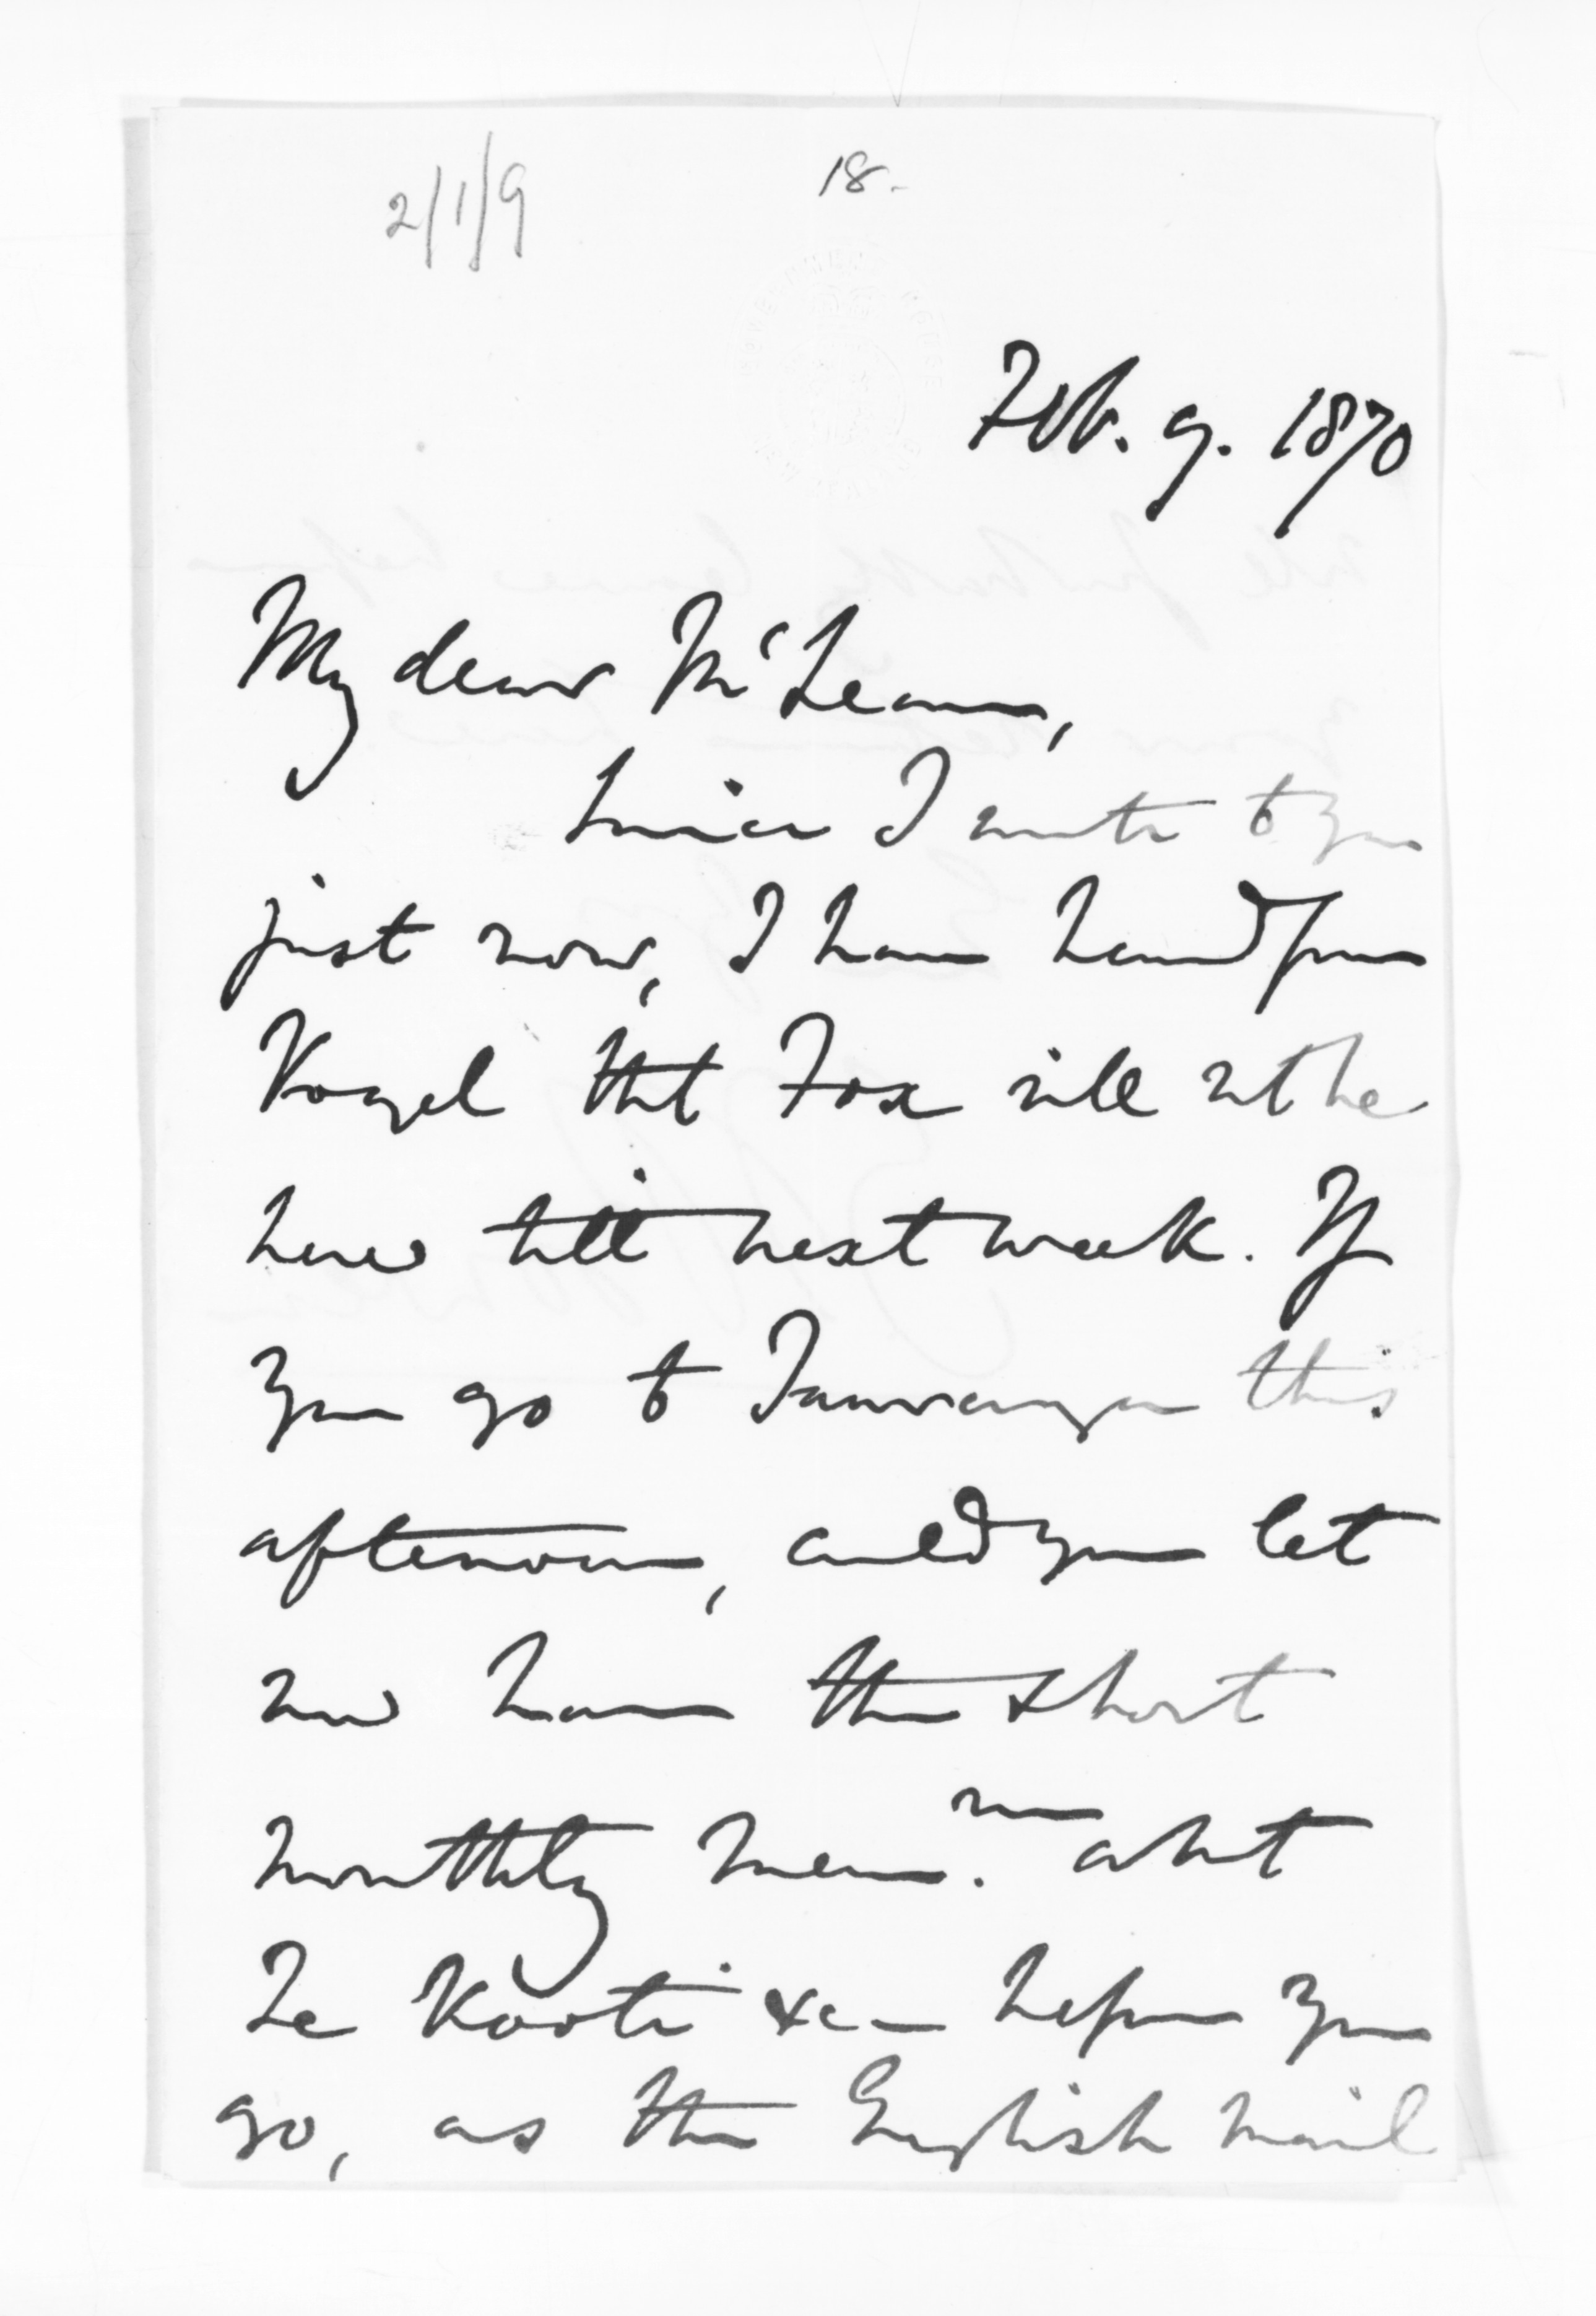 2/1/9
18.
Feb. 9. 1870
My dear McLean,
Since I wrote to you
just now, I have heard from
Vogel tht Fox will nt be
here till next week. If
you go to Tauranga this
afternoon, could you let
me have the short
monthly mem.m abt
Te Kooti &c — before you
go, as the English mail